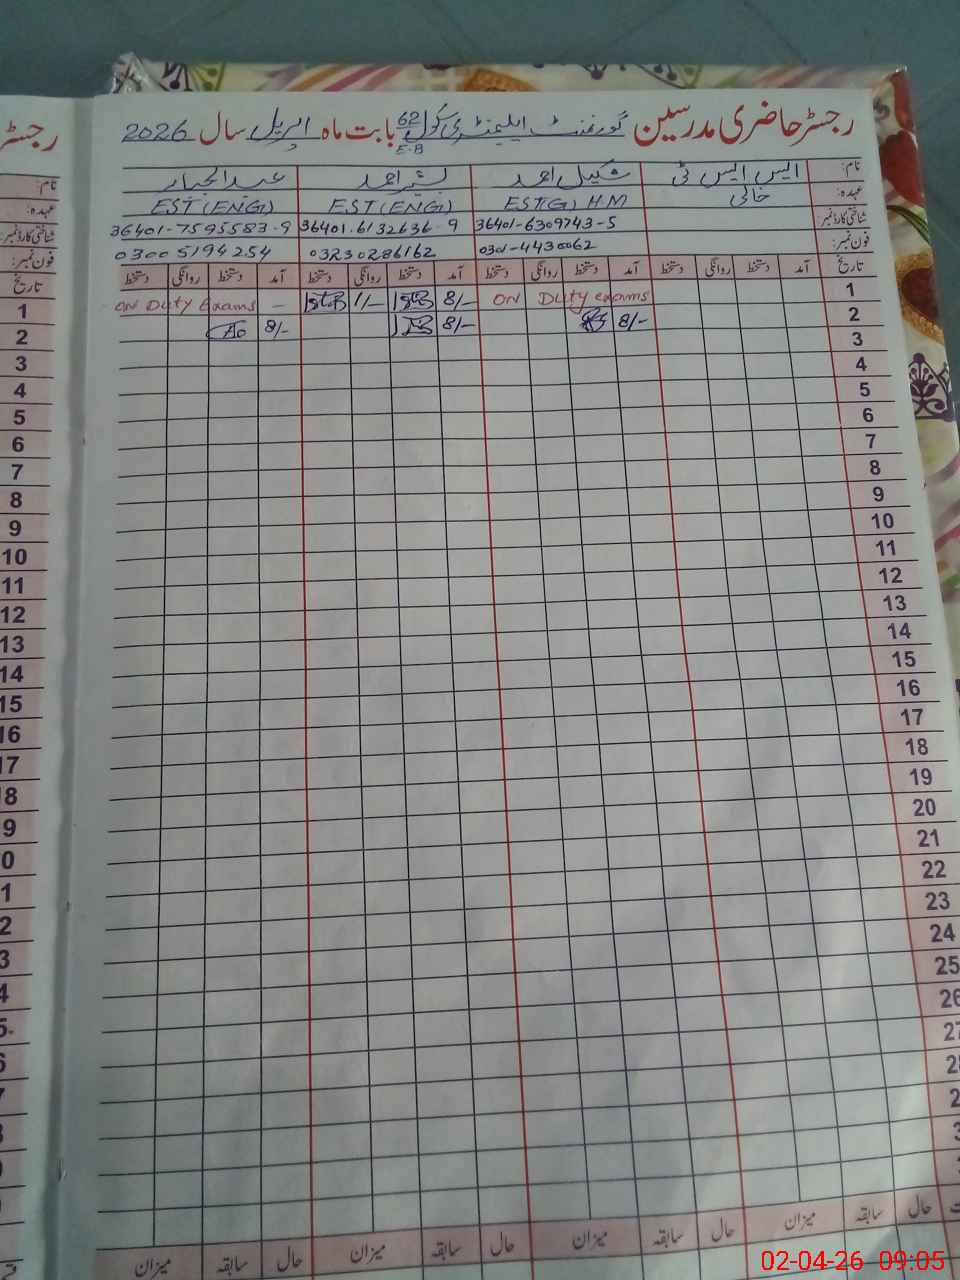 رجسٹر حاضری مدرسین گورنمنٹ ایلیمنٹری سکول 62 E.B بابت ماہ اپریل سال 2026
نام: ایس ایس ٹی شکیل احمد بشیر احمد عبدالجبار
عہدہ: خالی EST(G) H.M EST(ENG) EST(ENG)
شناختی کارڈ نمبر: 36401-6309743-5 36401.6132636-9 36401-7595583-9
فون نمبر: 0301-4430062 03230286162 03005194254
تاریخ آمد دستخط روانگی دستخط آمد دستخط روانگی دستخط آمد دستخط روانگی دستخط آمد دستخط روانگی دستخط تاریخ
1 ON Duty exams 8/- 1/- ON Duty Exams - 1
2 8/- 8/- 8/- 2
3 3
4 4
5 5
6 6
7 7
8 8
9 9
10 10
11 11
12 12
13 13
14 14
15 15
16 16
17 17
18 8
19 9
20 0
21 1
22 2
23 3
24 4
25 5
26 6
27 7
حال سابقہ میزان حال سابقہ میزان حال سابقہ میزان حال سابقہ میزان
02-04-26 09:05